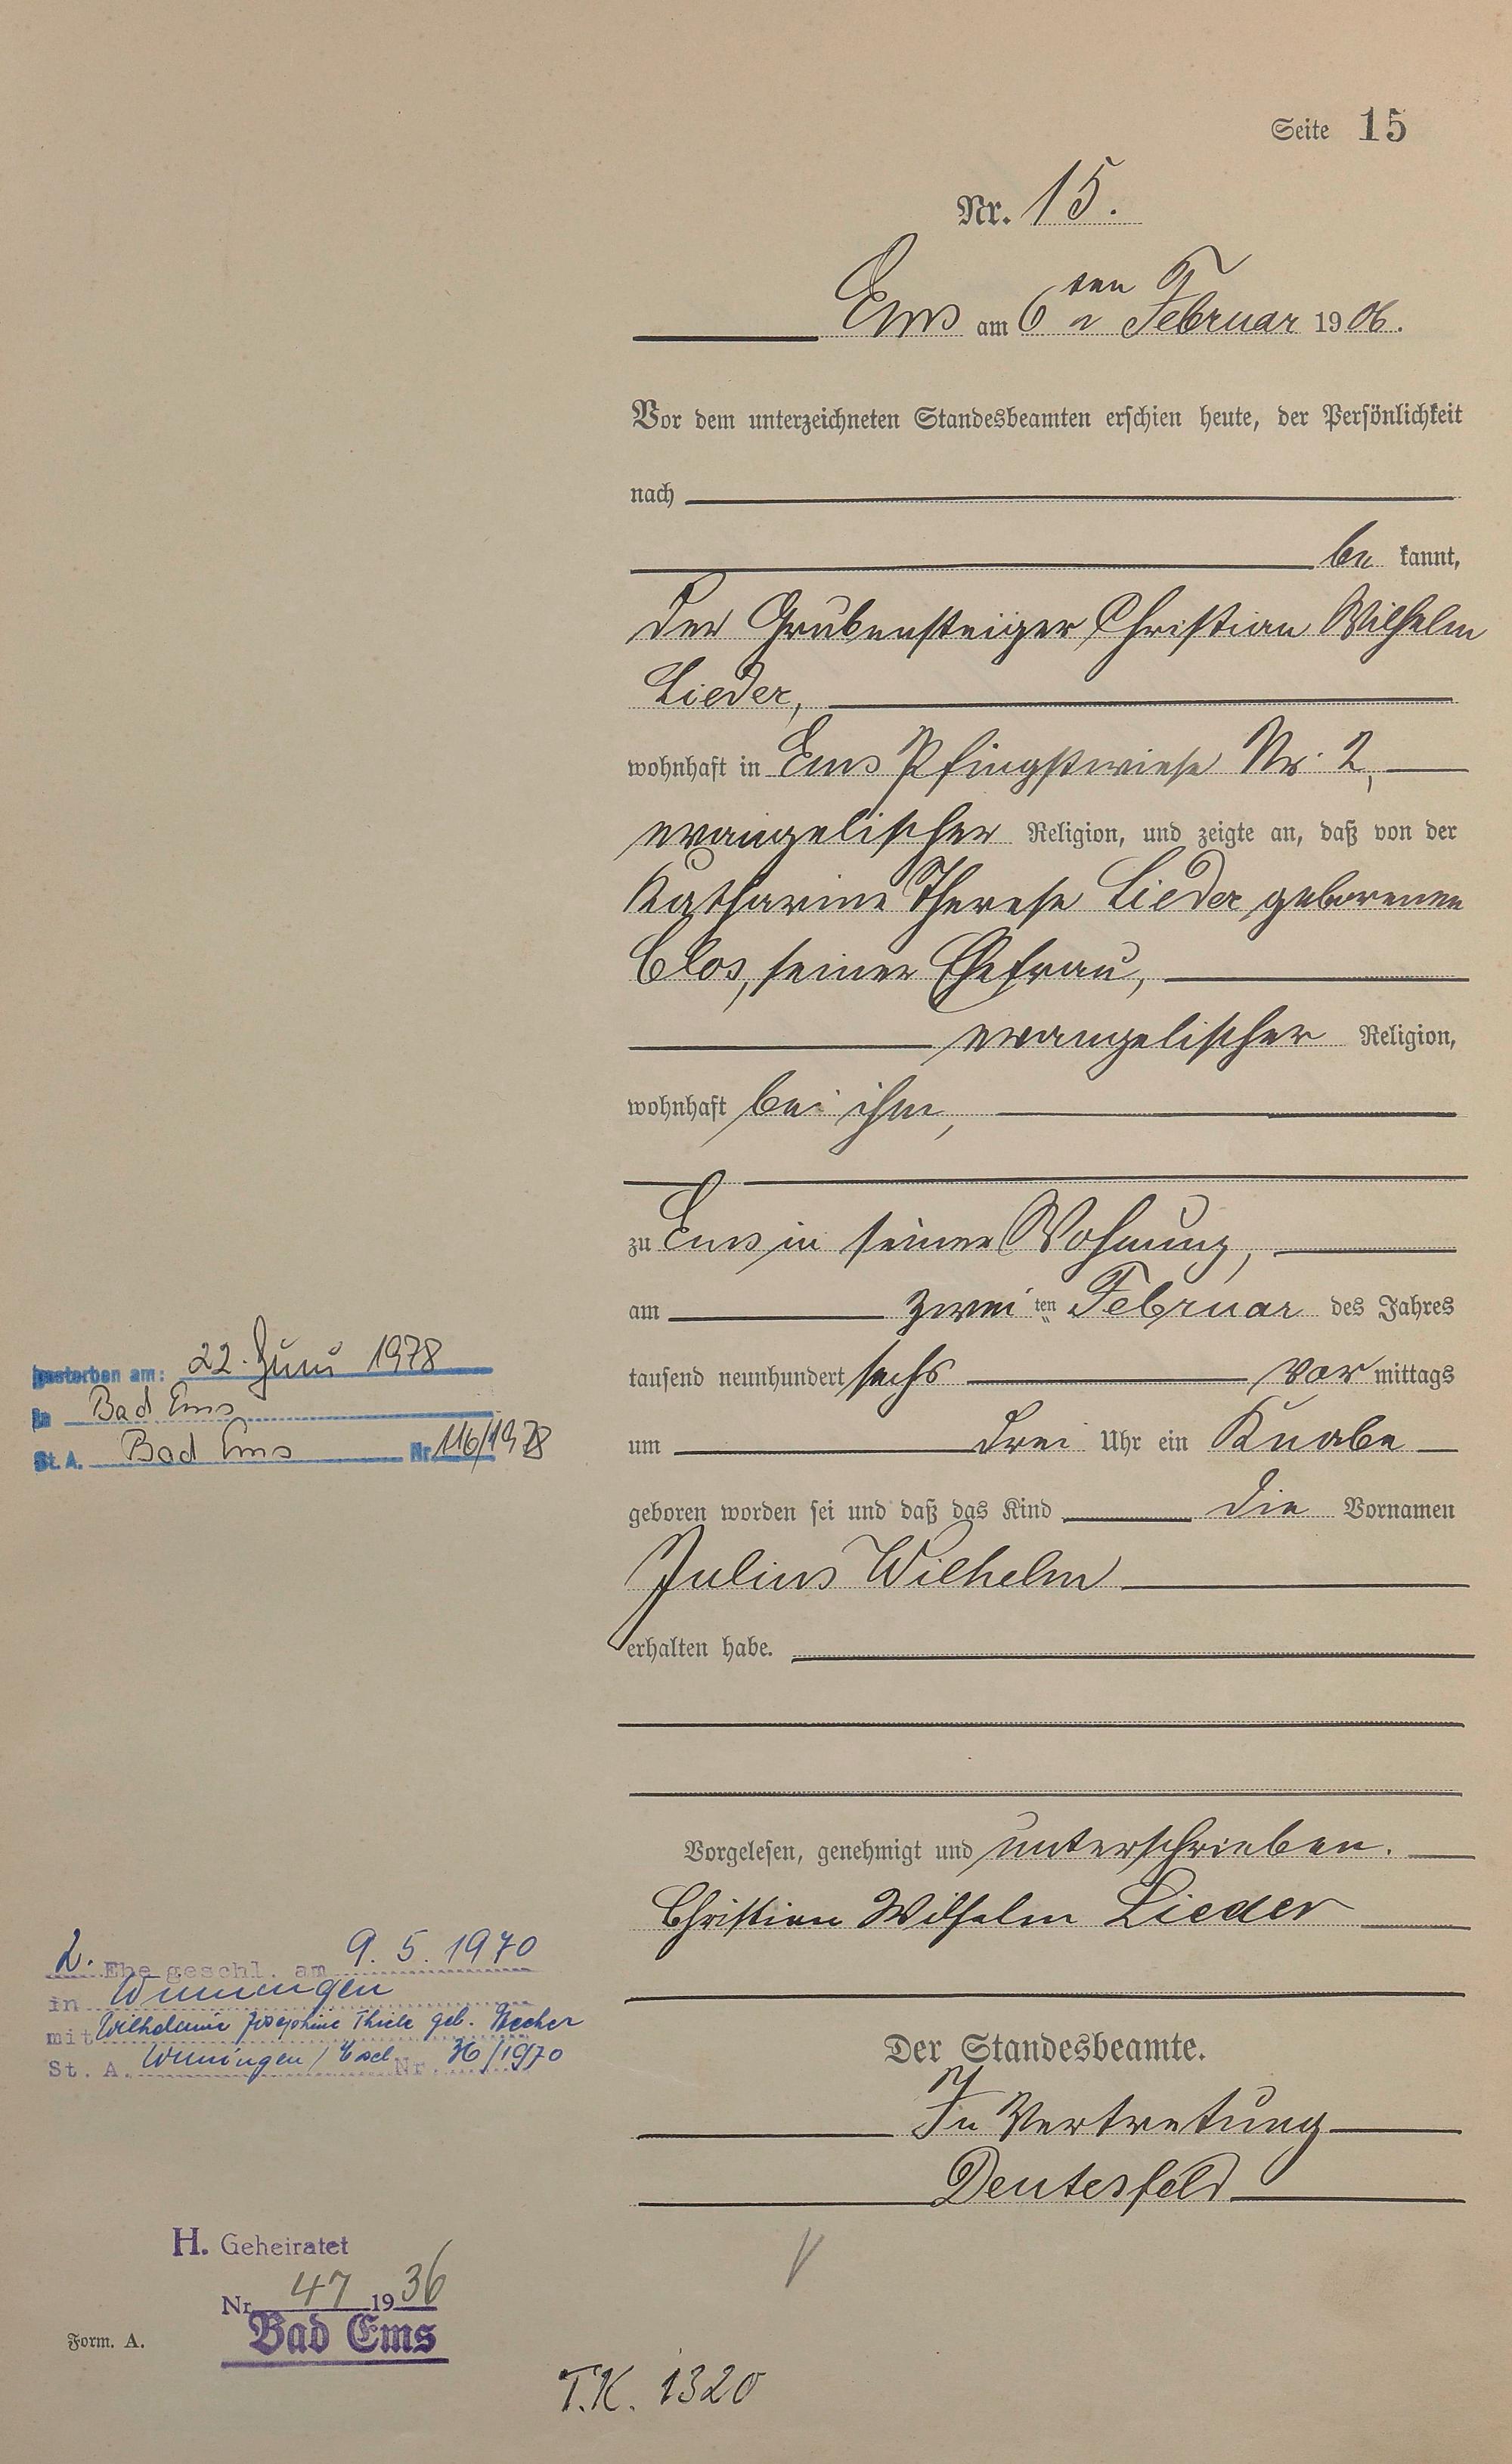 Seite 15
Nr. 15.
Ems am 6ten Februar 1906.
Vor dem unterzeichneten Standesbeamten erschien heute, der Persönlichkeit
nach
be kannt,
der Grubensteiger Christian Wilhelm
Lieder,
wohnhaft in Ems Pfingstwiese Nr. 2,
evangelischer Religion, und zeigte an, daß von der
Katharine Therese Lieder geborenen
Clos, seiner Ehefrau,
evangelischer Religion,
wohnhaft bei ihm,
zu Ems in seiner Wohnung,
am zwei ten Februar des Jahres
tausend neunhundert sechs vor mittags
um drei Uhr ein Knabe
geboren worden sei und daß das Kind die Vornamen
Julius Wilhelm
erhalten habe.
Vorgelesen, genehmigt und unterschrieben.
Christian Wilhelm Lieder
Der Standesbeamte.
In Vertretung
Deutesfeld
gestorben am: 22. Juni 1978
in Bad Ems
St. A. Bad Ems Nr. 116/1978
2. Ehe geschl. am 9.5.1970
in Winningen
mit Wilhelmine Josephine Thiele geb.
St. A. Winningen / Nr. /1970
H. Geheiratet
Nr. 47 1936
Bad Ems
Form. A.
T.K. 1320